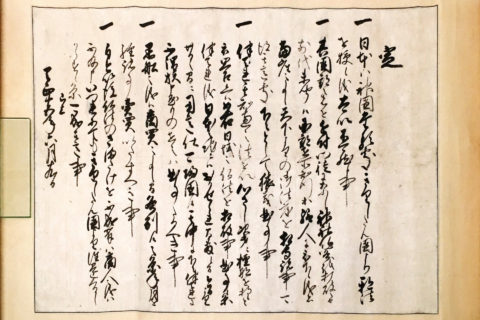 定
一 日本ハ神国たる処きりしたん国より邪法
を授候儀太以不可然候事
一 其国郡之者を近付門徒になし神社仏閣を打破
之由前代未聞候国郡在所知行等給人に被下候儀者
当座之事候天下よりの御法度を相守諸事
可得其意処下々として猥義曲事事
一 伴天連其知恵之法を以心さし次第ニ檀那を持
候と被思召候へハ如右日域之仏法を相破事曲事候条
伴天連儀日本之地ニハおかせられ間敷候間今日より
廿日之間ニ用意仕可帰国候其中に下々伴天連に
不謂族申懸もの在之ハ曲事たるへき事
一 黒船之儀ハ商買之事候間各別候之条年月を
経諸事売買いたすへき事
一 自今以後仏法のさまたけを不成輩ハ商人之儀ハ
不及申いつれにてもきりしたん国より往還くるし
からす候条可成其意事
已上
天正十五年六月十九日